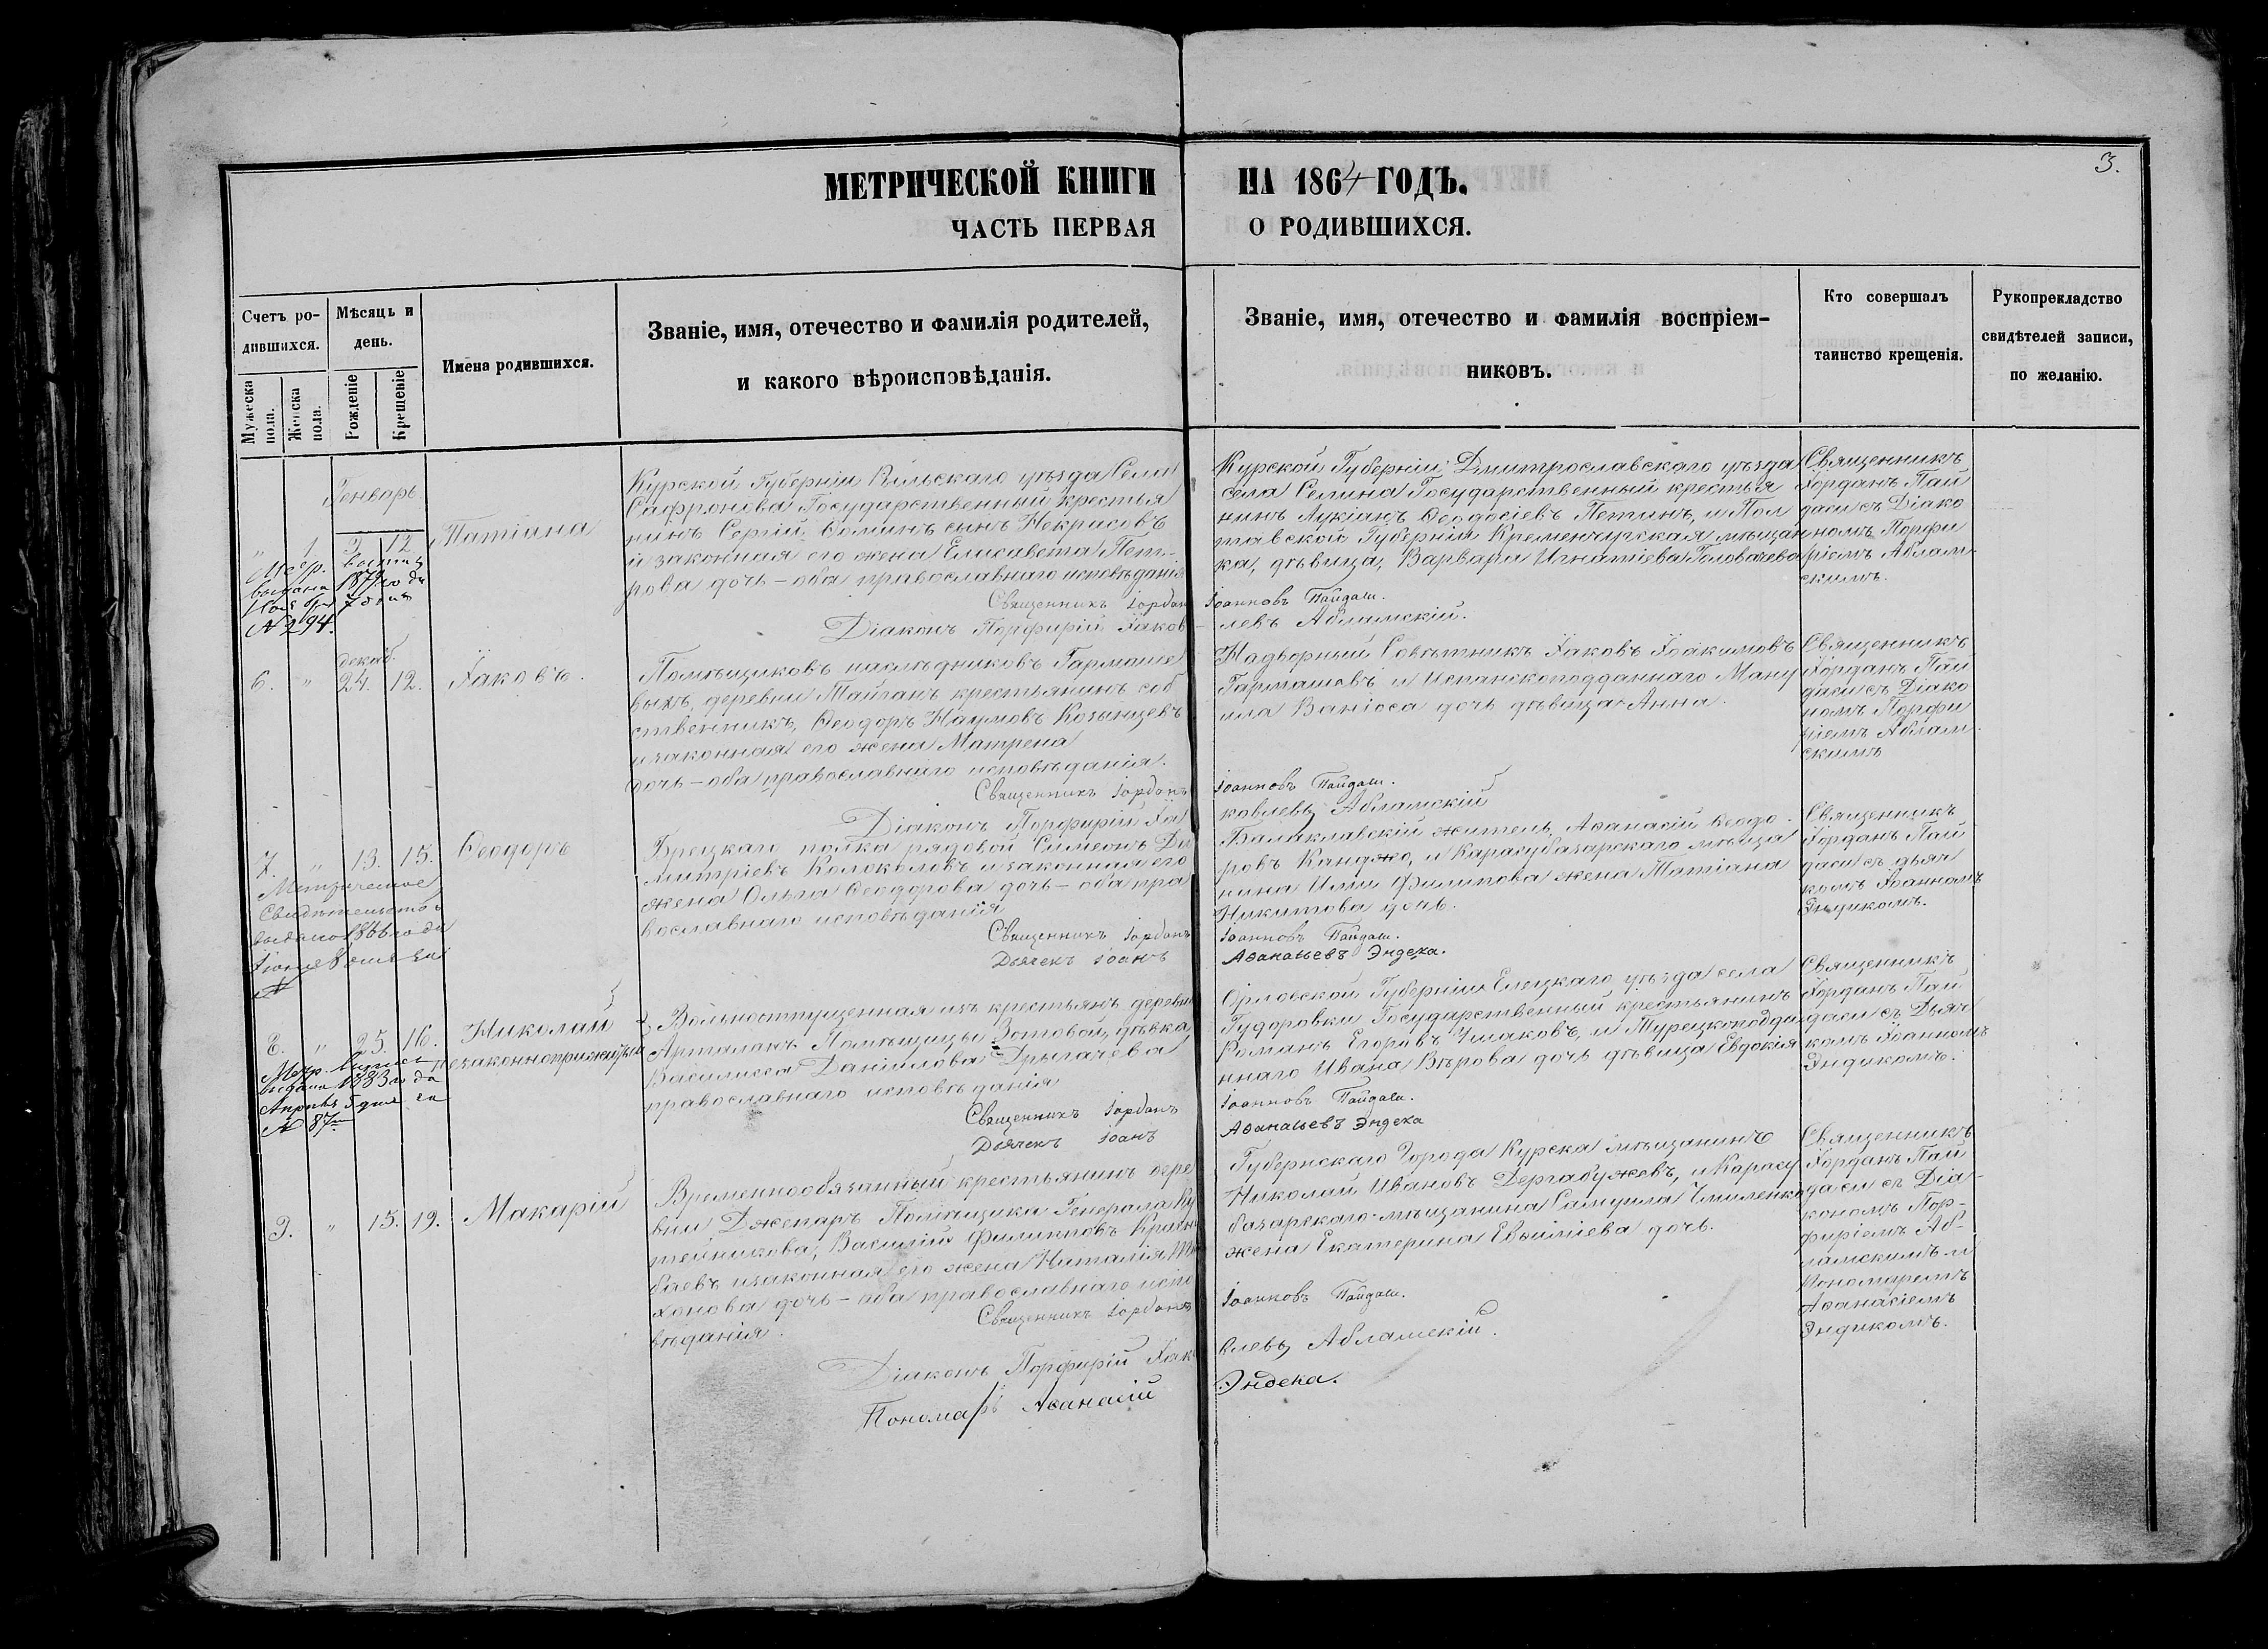 3.
МЕТРИЧЕСКОЙ КНИГИ НА 1864 ГОДЪ.
ЧАСТЬ ПЕРВАЯ О РОДИВШИХСЯ.
Счетъ ро-
дившихся.
Мужеска пола.
Женска пола.
Мѣсяцъ и
день.
Рожденіе
Крещеніе
Имена родившихся.
Званіе, имя, отечество и фамилія родителей,
и какого вѣроисповѣданія.
Званіе, имя, отечество и фамилія воспріем-
никовъ.
Кто совершалъ
таинство крещенія.
Рукоприкладство
свидѣтелей записи,
по желанію.
Генварь
" 1. 9. 12
Татіана
№ 294.
Курской Губерніи Рыльскаго уѣзда Села
Сафронова Государственный крестья
нинъ Сергій Ѳоминъ сынъ Некрасовъ
и законная его жена Елисавета Пет-
рова дочь - оба православнаго исповѣданія
Священникъ Іорданъ Іоанновъ Пайдаси.
Діаконъ Порфирій Іаков-левъ Абламскій.
Курской Губерніи Дмитрославскаго уѣзда
села Селина Государственный крестья
нинъ Лукіанъ Ѳеодосіевъ Петинъ, и Пол
тавской Губерніи Кременчугская мѣщан
ка, дѣвица, Варвара Игнатіева Головачева
Священникъ
Іорданъ Пай
даси съ Діако
номъ Порфи
ріемъ Аблам-
скимъ.
декаб.
6. " 24. 12.
Іаковъ.
Помѣщиковъ наслѣдниковъ Гармаше
выхъ, деревни Тайганъ крестьянинъ соб
ственникъ, Ѳеодоръ Наумовъ Козынцевъ
и законная его жена Матрена
дочь - оба православнаго исповѣданія.
Священникъ Іорданъ Іоанновъ Пайдаси.
Діаконъ Порфирій Іаковлевъ Абламскій
Надворный Совѣтникъ Іаковъ Іоакимовъ
Гармашовъ и ИспанскоподданнагоМану
ила Ваніоса дочь дѣвица Анна.
Священникъ
Іорданъ Пай
даси съ Діако
номъ Порфи
ріемъ Аблам
скимъ
7. " 13. 15.
Ѳеодоръ
Метрическое
Свидѣтельство
выдано 1866 года
№
Брецкаго полка рядовой Симеонъ Ди
митріевъ Колоколовъ и законная его
жена Ольга Ѳеодорова дочь - оба пра
вославнаго исповѣданія
Священникъ Іорданъ Іоанновъ Пайдаси.
Дьячекъ Іоанъ Аѳанасьевъ Эндека.
Балаклавскій житель Аѳанасій Ѳеодо-
ровъ Канджо, и Карасубазарскаго мѣща
нина Иліи Филипова жена Татіана
Никитова дочь.
Священникъ
Іорданъ Пай
даси съ дьяч
комъ Іоанномъ
Эндикомъ.
8. " 25. 16.
Николай
незаконноприжитый
выдана 1883 года
Апрѣля 5 дня за
№ 87
Вольноотпущенная изъ крестьянъ деревни
Арталанъ Помѣщицы Зотовой, дѣвка
Василисса Даніилова Дрыгачева
православнаго исповѣданія
Священникъ Іорданъ Іоанновъ Пайдаси.
Дьячекъ Іоанъ Аѳанасьевъ Эндека
Орловской Губерніи Елецкаго уѣзда села
Гудоровки Государственный крестьянинъ
Романъ Егоровъ Ушаковъ, и Турецкоподда
ннаго Ивана Вѣрова дочь дѣвица Евдокія
Священникъ
Іорданъ Пай
даси съ Дьяч
комъ Іоанномъ
Эндикомъ.
9. " 15. 19.
Макарій
Временнообязанный крестьянинъ дере
вни Дженаръ Помѣщика Генерала Ку
тейникова, Василій Филипповъ Кравч
баевъ и законная его жена Наталія Ти
хонова дочь - оба православнаго испо
вѣданія.
Священникъ Іорданъ Іоанновъ Пайдаси.
Діаконъ Порфирій Іаковлевъ Абламскій.
Пономарь Аѳанасій Эндека.
Губернскаго Города Курска мѣщанинъ
Николай Ивановъ Дергабужевъ, и Карасу
базарскаго мѣщанина Самуила Чмиленко
жена Екатерина Евѳиміева дочь.
Священникъ
Іорданъ Пай
даси съ Діа-
кономъ Пор-
фиріемъ Аб-
ламскимъ и
Пономаремъ
Аѳанасіемъ
Эндикомъ.